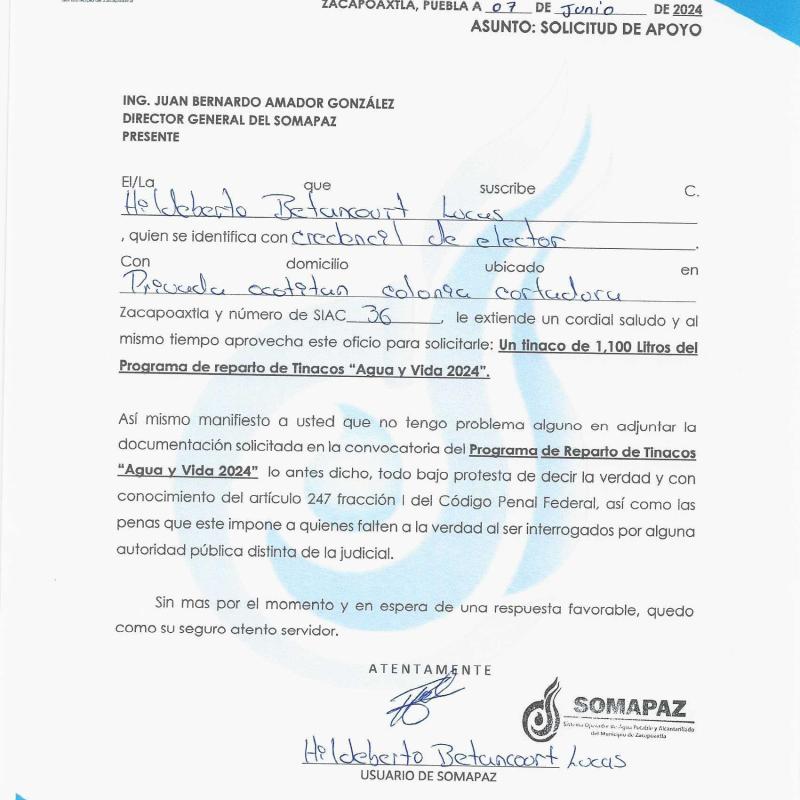 ZACAPOAXTLA, PUEBLA A 07 DE Junio DE 2024
ASUNTO: SOLICITUD DE APOYO
ING. JUAN BERNARDO AMADOR GONZÁLEZ
DIRECTOR GENERAL DEL SOMAPAZ
PRESENTE
El/La que suscribe C.
Hildeberto Betancourt Lucas
, quien se identifica con credencil de elector.
Con domicilio ubicado en
Privada ocotitan colonia cortadora
Zacapoaxtla y número de SIAC 36, le extiende un cordial saludo y al
mismo tiempo aprovecha este oficio para solicitarle: Un tinaco de 1,100 Litros del
Programa de reparto de Tinacos “Agua y Vida 2024”.
Así mismo manifiesto a usted que no tengo problema alguno en adjuntar la
documentación solicitada en la convocatoria del Programa de Reparto de Tinacos
“Agua y Vida 2024” lo antes dicho, todo bajo protesta de decir la verdad y con
conocimiento del artículo 247 fracción I del Código Penal Federal, así como las
penas que este impone a quienes falten a la verdad al ser interrogados por alguna
autoridad pública distinta de la judicial.
Sin mas por el momento y en espera de una respuesta favorable, quedo
como su seguro atento servidor.
ATENTAMENTE
SOMAPAZ
Sistema Operador de Agua Potable y Alcantarillado
del Municipio de Zacapoaxtla
Hildeberto Betancourt Lucas
USUARIO DE SOMAPAZ